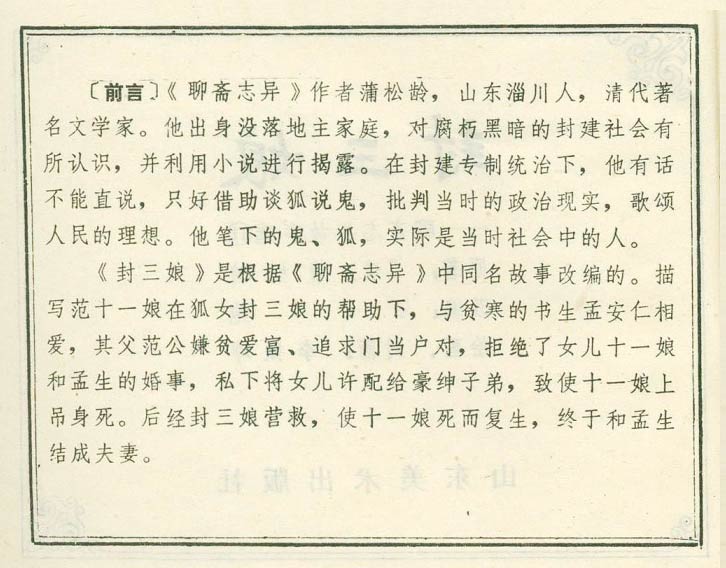 〔前言〕《聊斋志异》作者蒲松龄，山东淄川人，清代著
名文学家。他出身没落地主家庭，对腐朽黑暗的封建社会有
所认识，并利用小说进行揭露。在封建专制统治下，他有话
不能直说，只好借助谈狐说鬼，批判当时的政治现实，歌颂
人民的理想。他笔下的鬼、狐，实际是当时社会中的人。
《封三娘》是根据《聊斋志异》中同名故事改编的。描
写范十一娘在狐女封三娘的帮助下，与贫寒的书生孟安仁相
爱，其父范公嫌贫爱富、追求门当户对，拒绝了女儿十一娘
和孟生的婚事，私下将女儿许配给豪绅子弟，致使十一娘上
吊身死。后经封三娘营救，使十一娘死而复生，终于和孟生
结成夫妻。
山东美术出版社